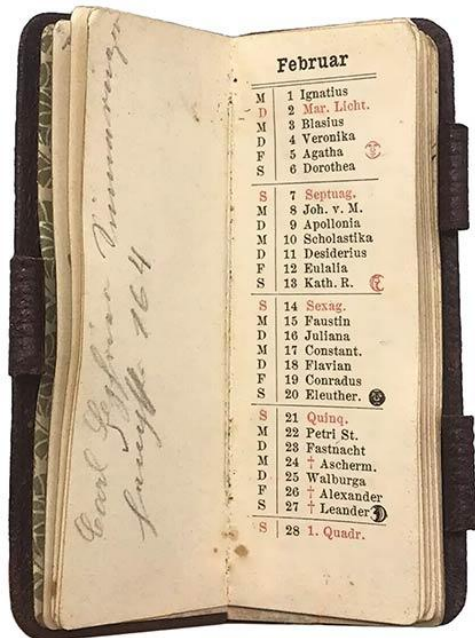 Carl
164
Februar
M 1 Ignatius
D 2 Mar. Licht.
M 3 Blasius
D 4 Veronika
F 5 Agatha
S 6 Dorothea
S 7 Septuag.
M 8 Joh. v. M.
D 9 Apollonia
M 10 Scholastika
D 11 Desiderius
F 12 Eulalia
S 13 Kath. R.
S 14 Sexag.
M 15 Faustin
D 16 Juliana
M 17 Constant.
D 18 Flavian
F 19 Conradus
S 20 Eleuther.
S 21 Quinq.
M 22 Petri St.
D 23 Fastnacht
M 24 † Ascherm.
D 25 Walburga
F 26 † Alexander
S 27 † Leander
S 28 1. Quadr.